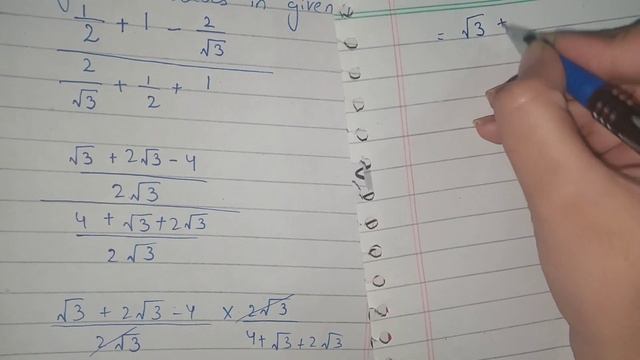 in given
1/2 + 1 - 2/√3
2/√3 + 1/2 + 1
√3 + 2√3 - 4
2√3
4 + √3 + 2√3
2√3
√3 + 2√3 - 4 × 2√3
2√3 4+√3+2√3
= √3 +